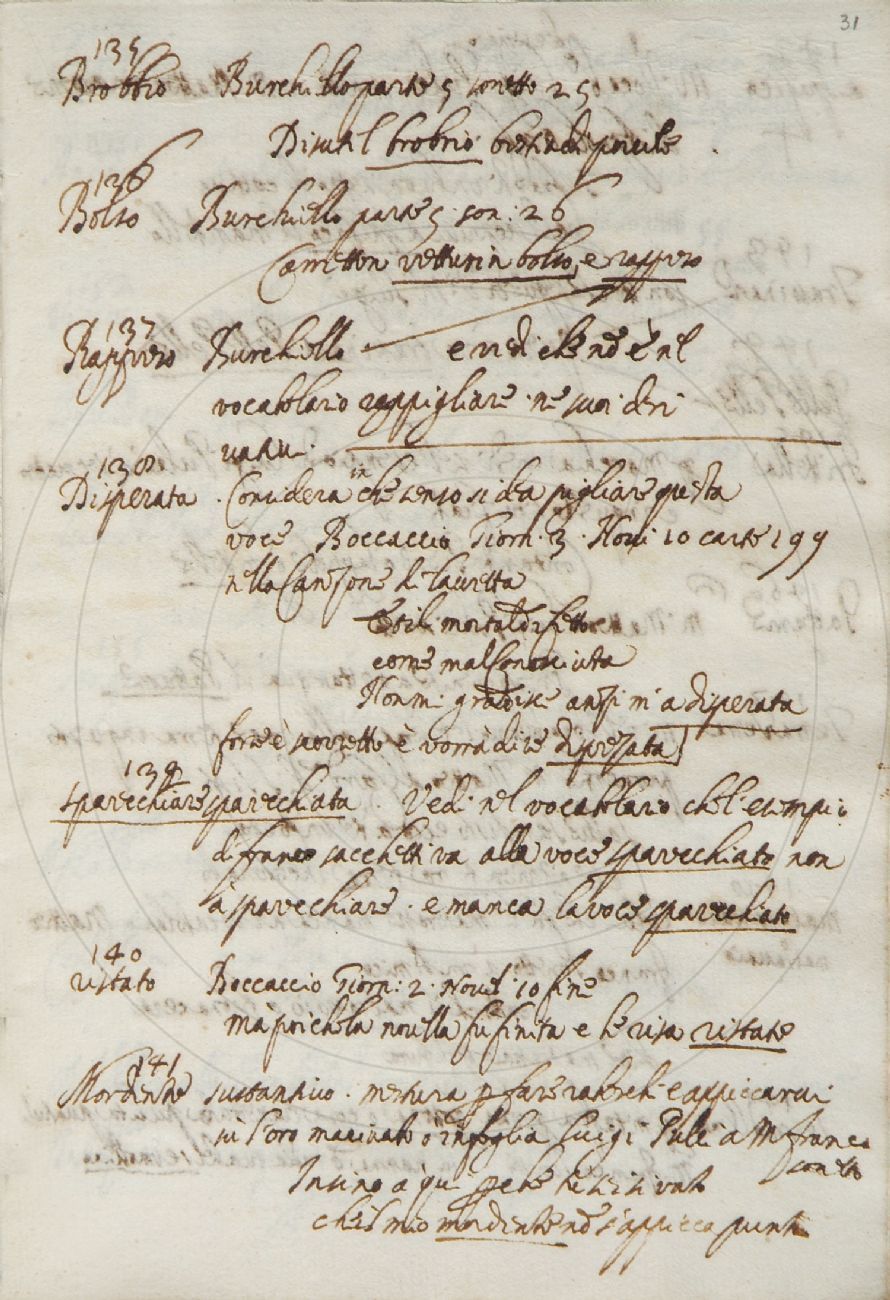 31
135
Brobbio Burchiello parte 5 sonetto 25
Disutil brobrio bestia di porcile.
136
Bolso Burchiello parte 5. son: 26
Carretton vetturin bolso, e rappreso
137
Rappreso Burchiello e vedi che nō è nel
vocabolario rappigliare. ne suoi deri
vativi.
138
Disperata. Considera in che senso si dea pigliare questa
voce Boccaccio Giorn. 3. Nov: 10 carte 199
nella Canzone di Lauretta
E til mortal difetto
come mal conosciuta
Non mi gradisce anzi m'a disperata
forse è scorretto è vorrà dire disprezzata
139
sparecchiare sparecchiata. Vedi nel vocabolario che l'esempio
di franco sacchetti va alla voce sparecchiato non
à sparecchiare. e manca la voce sparecchiato
140
ristato Boccaccio Giorn: 2. Novel: 10 fine
ma poichè la novella fu finita e le risa ristate
141
Mordente sustantivo. mestura p fare rabeschi e appiccarvi
su l'oro macinato o in foglia Luigi Pulci a M franco
sonetto
Insino a qui perche
che'l mio mordente nō s'appicca punto